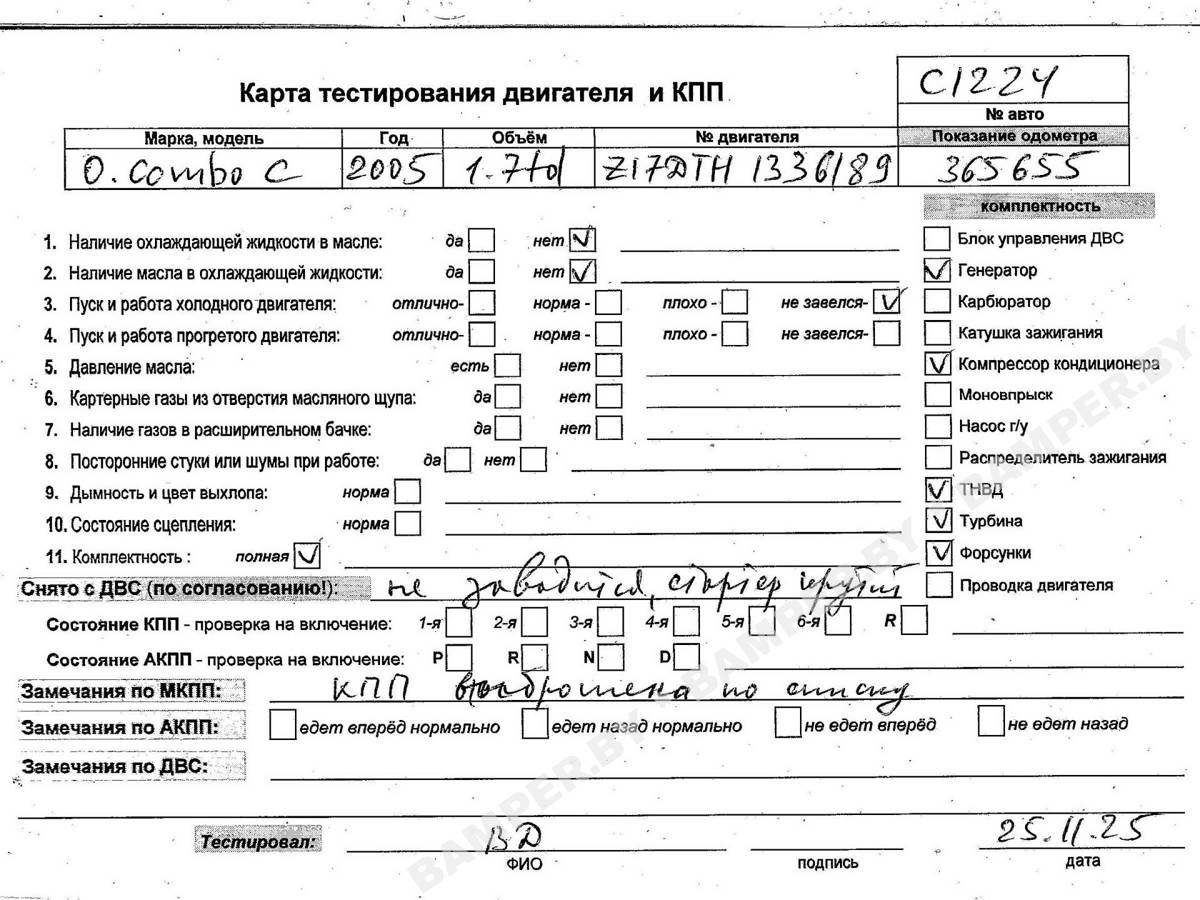 С1224
Карта тестирования двигателя и КПП
№ авто
Марка, модель Год Объём № двигателя Показание одометра
O. Combo C 2005 1.7td Z17DTH 1336189 365655
комплектность
1. Наличие охлаждающей жидкости в масле: да нет Блок управления ДВС
2. Наличие масла в охлаждающей жидкости: да нет Генератор
3. Пуск и работа холодного двигателя: отлично- норма - плохо - не завелся- Карбюратор
4. Пуск и работа прогретого двигателя: отлично- норма - плохо - не завелся- Катушка зажигания
5. Давление масла: есть нет Компрессор кондиционера
6. Картерные газы из отверстия масляного щупа: да нет Моновпрыск
7. Наличие газов в расширительном бачке: да нет Насос г/у
8. Посторонние стуки или шумы при работе: да нет Распределитель зажигания
9. Дымность и цвет выхлопа: норма ТНВД
10. Состояние сцепления: норма Турбина
11. Комплектность : полная Форсунки
Снято с ДВС (по согласованию!): не заводится, стартер крутит Проводка двигателя
Состояние КПП - проверка на включение: 1-я 2-я 3-я 4-я 5-я 6-я R
Состояние АКПП - проверка на включение: P R N D
Замечания по МКПП: КПП выброшена по списку
Замечания по АКПП: едет вперёд нормально едет назад нормально не едет вперёд не едет назад
Замечания по ДВС:
Тестировал: ВД 25.11.25
ФИО подпись дата
BAMPER.BY BAMPER.BY BAMPER.BY